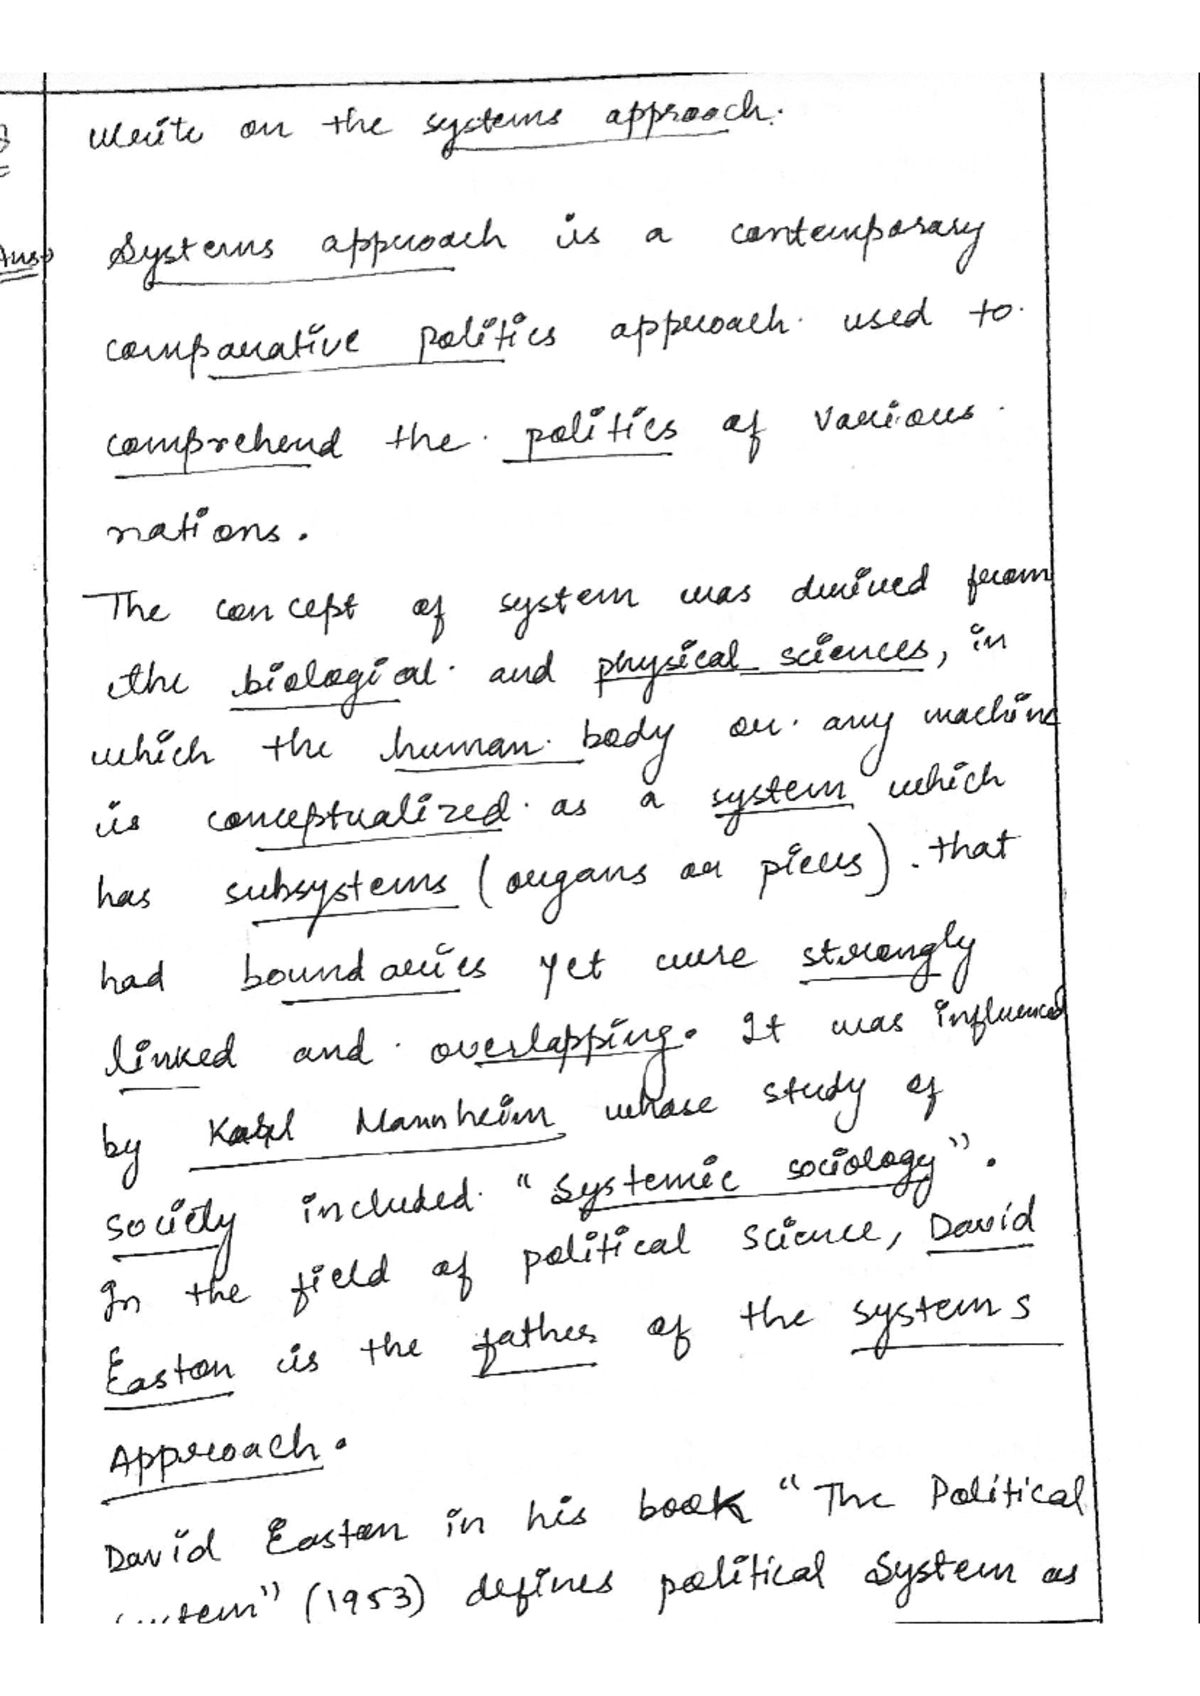 Write on the systems approach.
Ans→ Systems approach is a contemporary
comparative politics approach used to
comprehend the politics of various
nations.
The concept of system was derived from
the biological and physical sciences, in
which the human body or any machine
is conceptualized as a system which
has subsystems (organs or pieces) that
had boundaries yet were strongly
linked and overlapping. It was influenced
by Karl Mannheim whose study of
society included "Systemic sociology".
In the field of political science, David
Easton is the father of the systems
Approach.
David Easton in his book "The Political
System" (1953) defines political System as